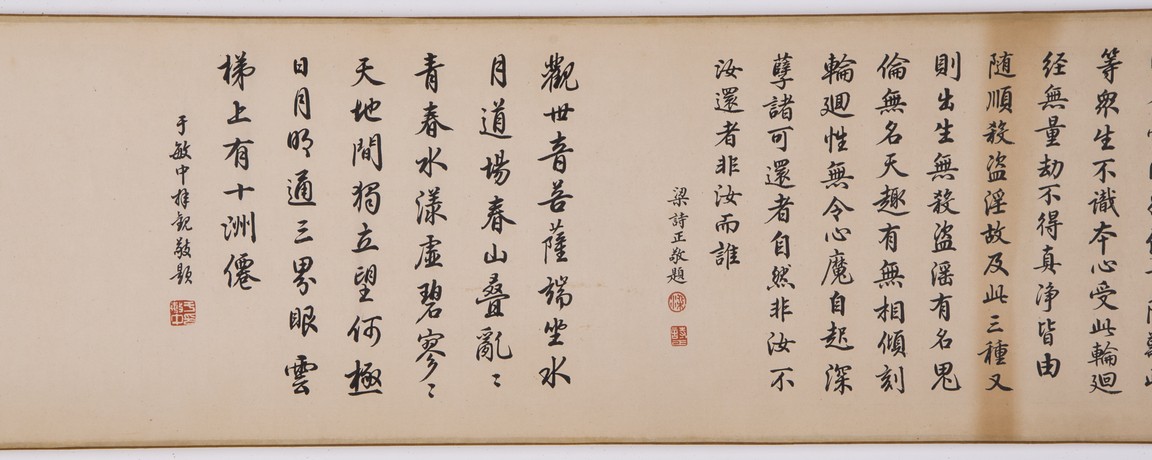 等衆生不識本心受此輪廻
经無量劫不得真浄皆由
随順殺盜淫故及此三種又
則出生無殺盜滛有名鬼
倫無名天趣有無相傾刻
輪廻性無令心魔自起深
孽諸可還者自然非汝不
汝還者非汝而誰
梁詩正敬題
觀世音菩薩端坐水
月道場春山疊亂〻
青春水漾虛碧寥〻
天地間獨立望何極
日月明通三界眼雲
梯上有十洲僊
于敏中拜觀敬題